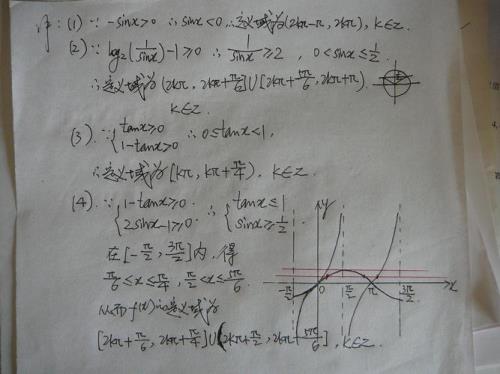 解:(1) ∵ -sinx>0 ∴ sinx<0, ∴定义域为(2kπ-π, 2kπ), k∈Z.
(2) ∵ log₂(1/sinx)-1≥0 ∴ 1/sinx≥2, 0<sinx≤1/2.
∴定义域为(2kπ, 2kπ+π/6]∪[2kπ+5π/6, 2kπ+π)
k∈Z
(3). ∵ {tanx≥0
1-tanx>0 ∴ 0≤tanx<1,
∴定义域为[kπ, kπ+π/4). k∈Z.
(4). ∵ {1-tanx≥0
2sinx-1≥0 ∴ {tanx≤1
sinx≥1/2.
在[-π/2, 3π/2]内, 得
π/6≤x≤π/4, π/2<x≤5π/6.
从而f(x)的定义域为
[2kπ+π/6, 2kπ+π/4]∪(2kπ+π/2, 2kπ+5π/6], k∈Z.
y
-π/2 0 π/2 π 3π/2 x